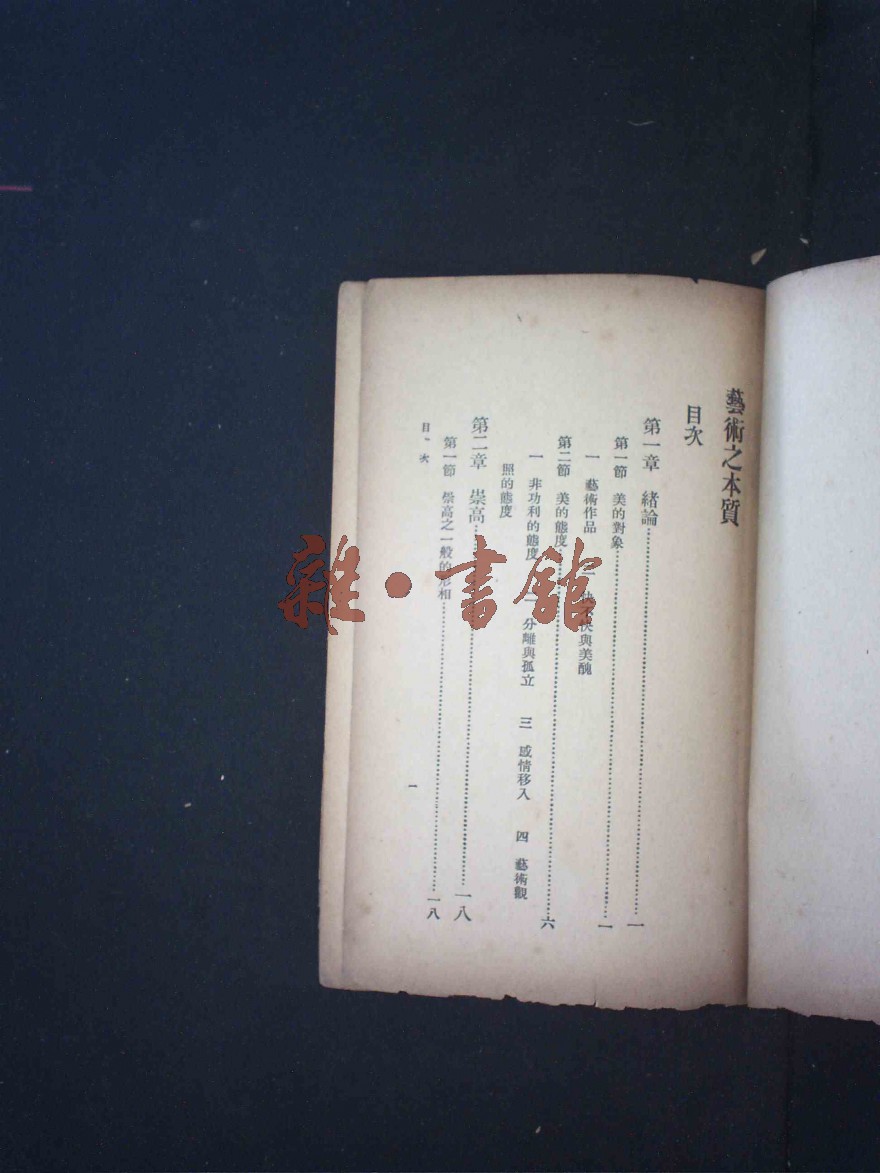 藝術之本質
目次
第一章 緒論……一
第一節 美的對象……一
一 藝術作品 二 快不快與美醜
第二節 美的態度……六
一 非功利的態度 二 分離與孤立 三 感情移入 四 藝術觀
照的態度
第二章 崇高……一八
第一節 崇高之一般的形相……一八
目次
一
雜·書館